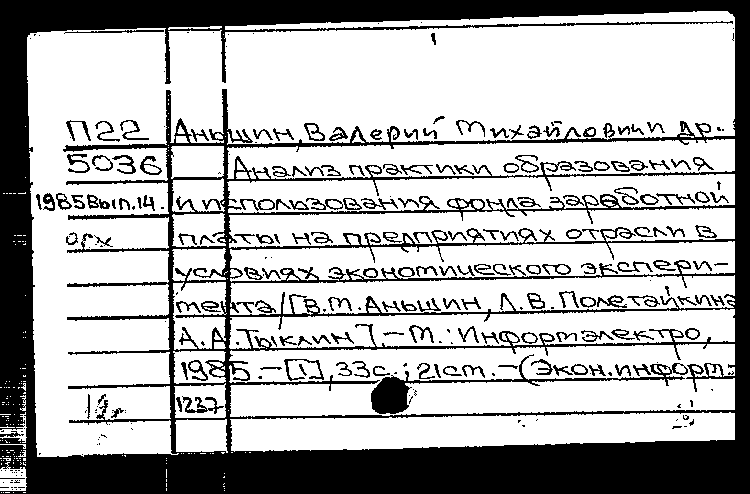 П22 Аньшин, Валерий Михайлович и др.
5036 Анализ практики образования
1985 Вып.14. и использования фонда заработной
арх платы на предприятиях отрасли в
условиях экономического экспери-
мента/[В.М.Аньшин, Л.В.Полетайкина
А.А.Тыклин].-М.:Информэлектро,
1985.-[1],33с.; 21см.-(Экон.информ-
1237